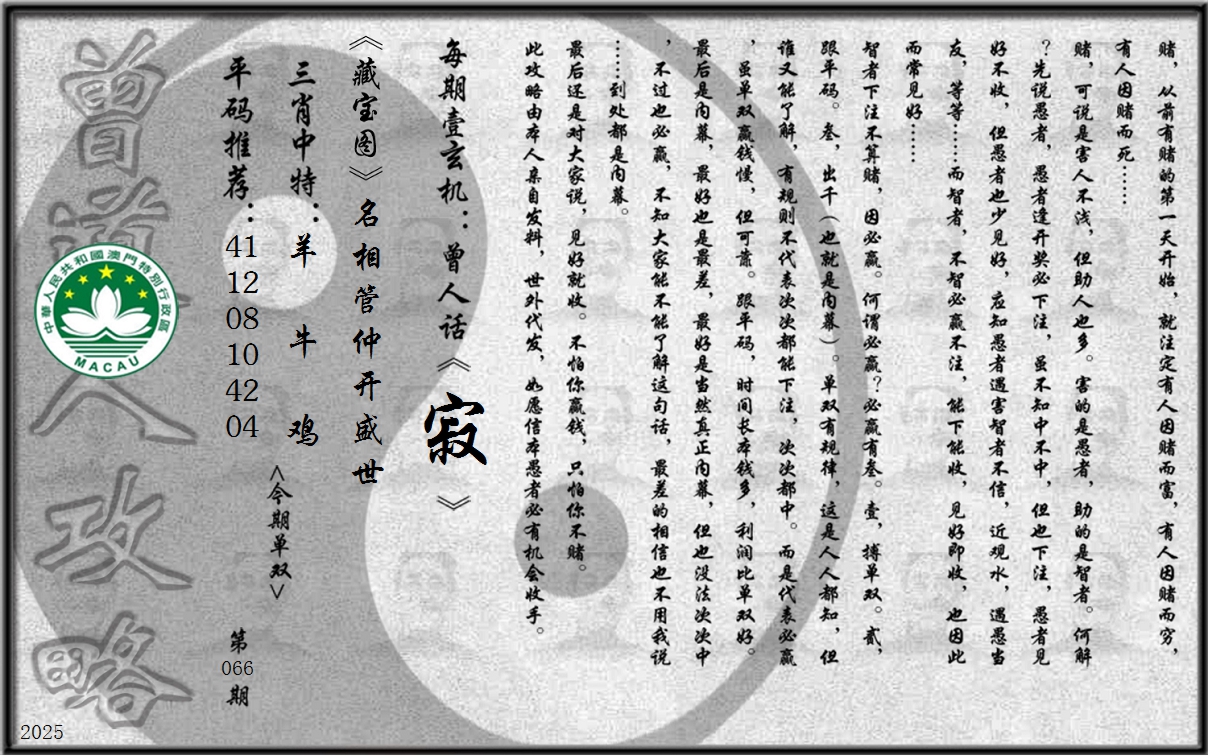 赌，从前有赌的第一天开始，就注定有人因赌而富，有人因赌而穷，
有人因赌而死……
赌，可说是害人不浅，但助人也多。害的是愚者，助的是智者。何解
？先说愚者，愚者逢开奖必下注，虽不知中不中，但也下注，愚者见
好不收，但愚者也少见好，应知愚者遇害智者不信，近观水，遇愚当
友，等等……而智者，不智必赢不注，能下能收，见好即收，也因此
而常见好……
智者下注不算赌，因必赢。何谓必赢？必赢有叁。壹，搏单双。贰，
跟平码。叁，出千（也就是内幕）。单双有规律，这是人人都知，但
谁又能了解，有规则不代表次次都能下注，次次都中。而是代表必赢
，虽单双赢钱慢，但可靠。跟平码，时间长本钱多，利润比单双好。
最后是内幕，最好也是最差，最好是当然真正内幕，但也没法次次中
，不过也必赢，不知大家能不能了解这句话，最差的相信也不用我说
……到处都是内幕。
最后还是对大家说，见好就收。不怕你赢钱，只怕你不赌。
此攻略由本人亲自发料，世外代发，如愿信本愚者必有机会收手。
每期壹玄机：曾人话《寂》
《藏宝图》名相管仲开盛世
三肖中特：羊 牛 鸡
<今期单双>
平码推荐：41 12 08 10 42 04
第066期
曾道人攻略
中華人民共和國澳門特別行政區
MACAU
2025